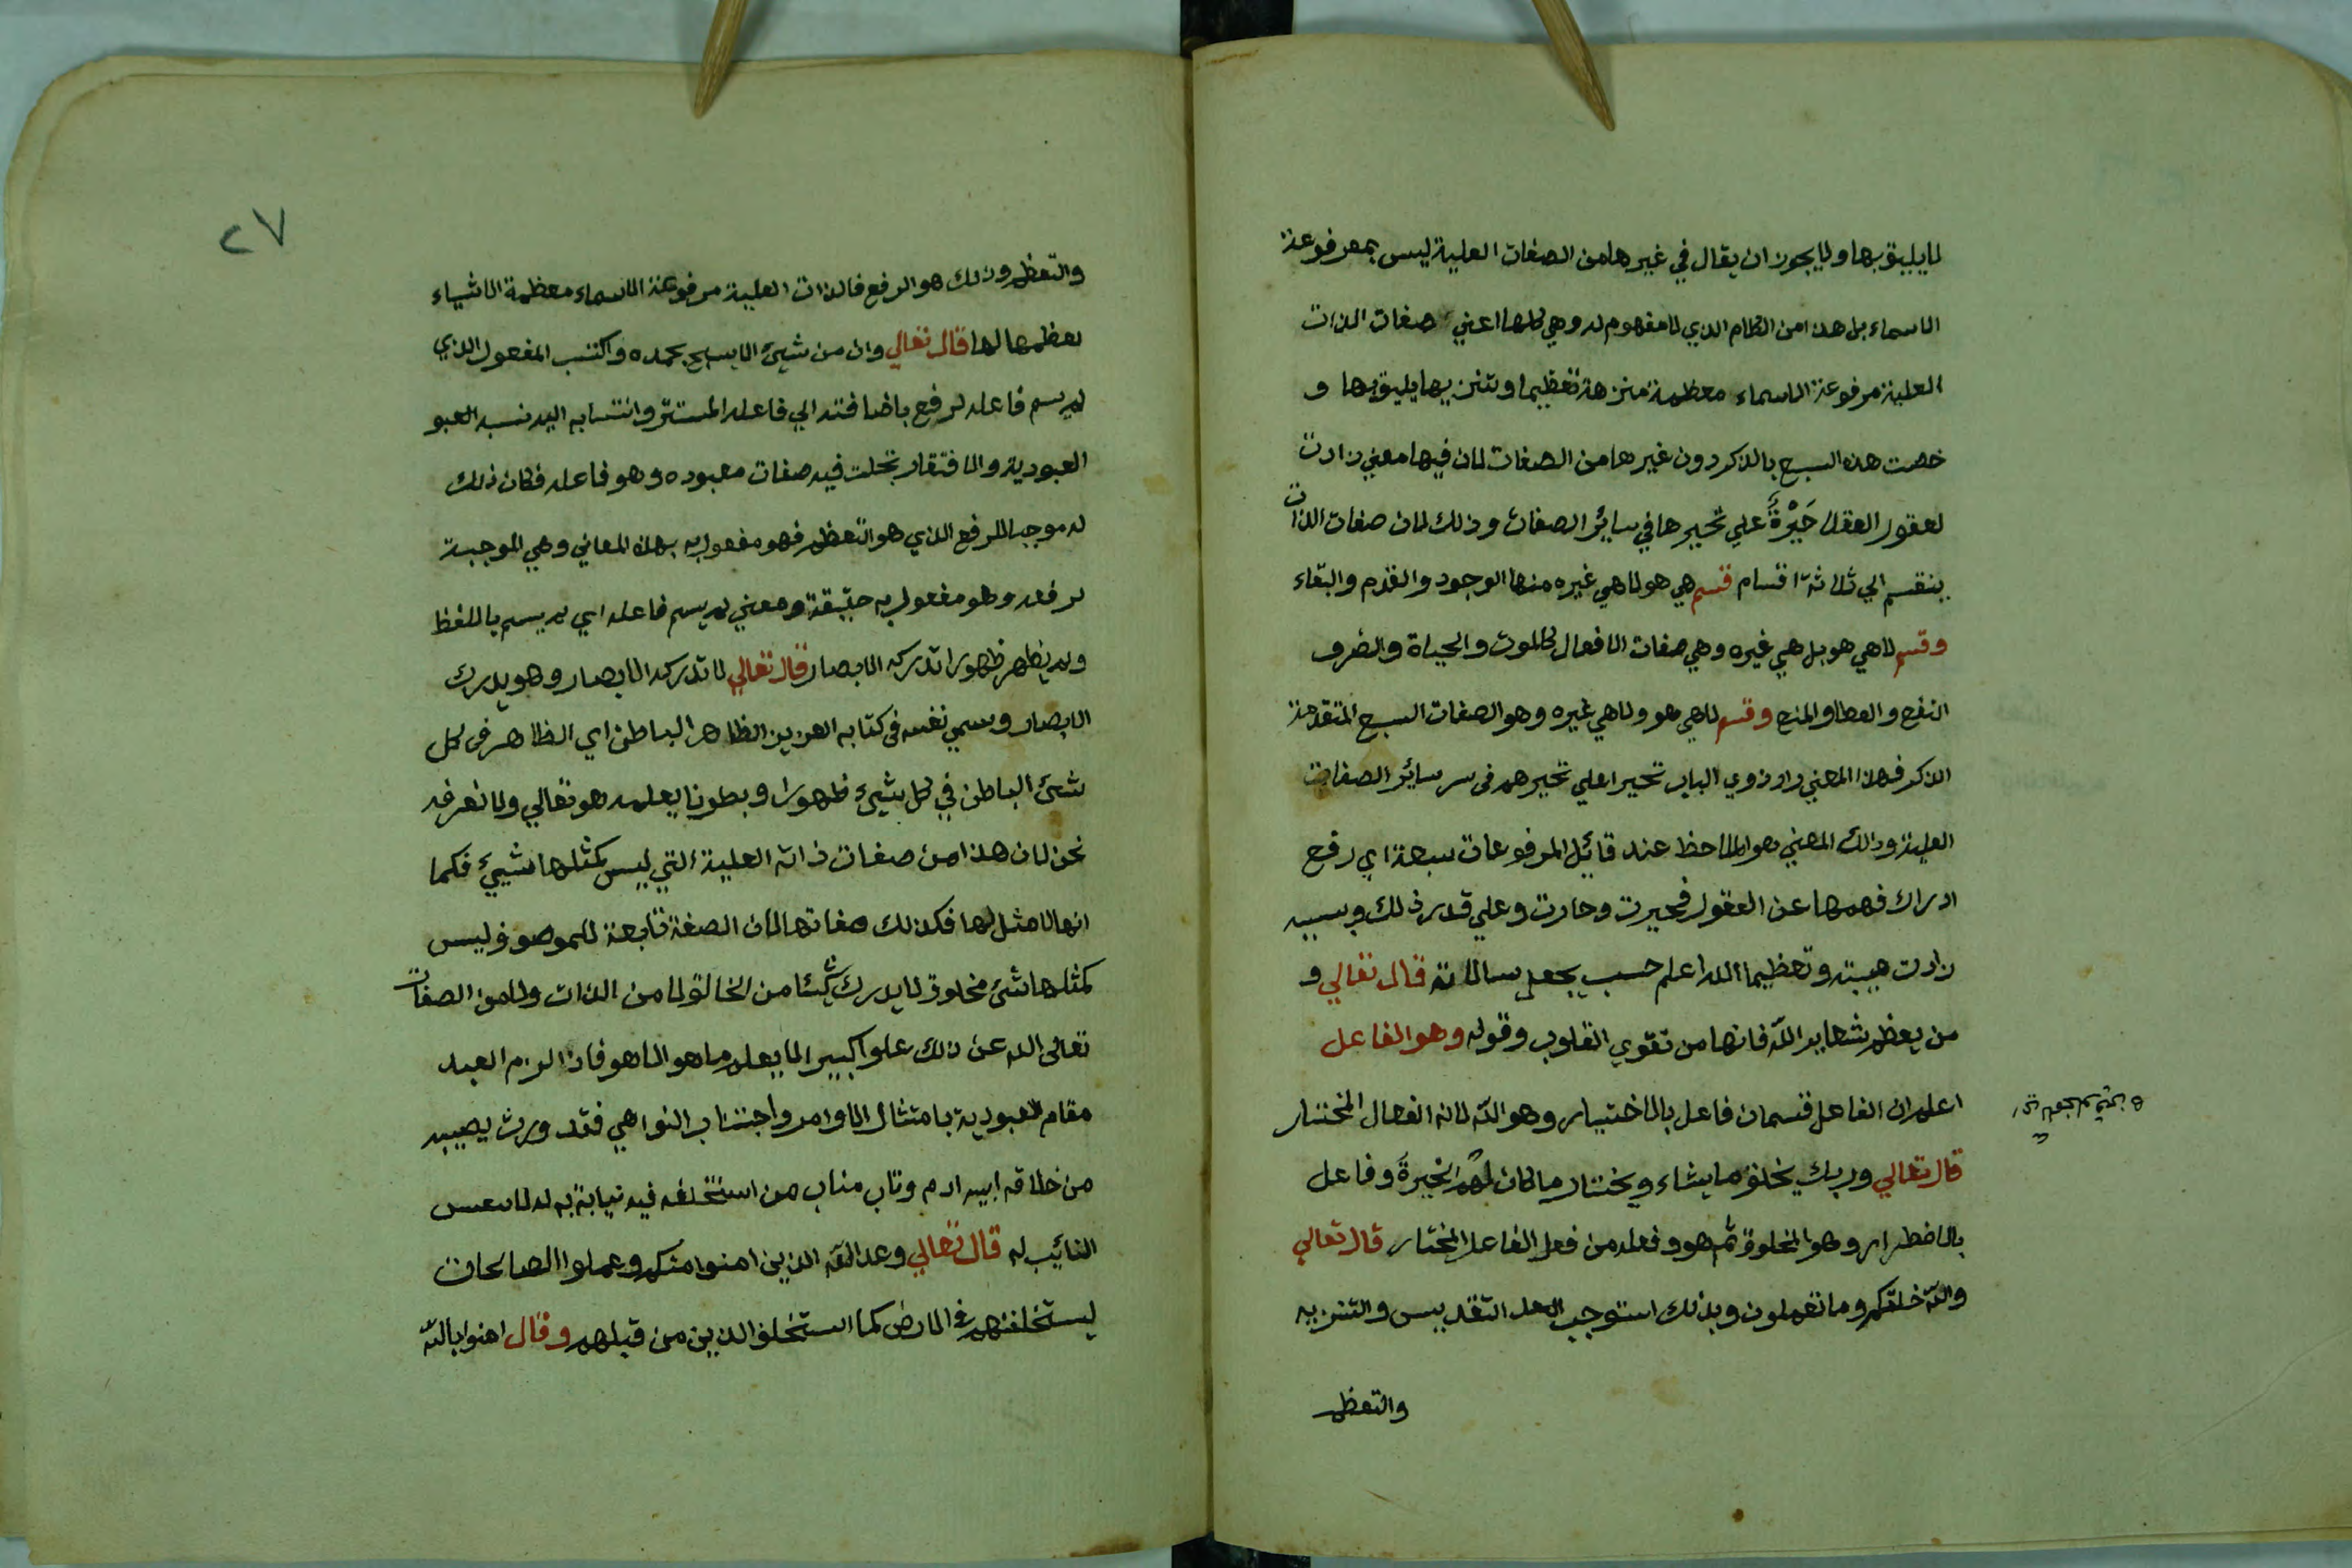 لا يليق بها ولا يجوز ان يقال في غيرها من الصفات العلية ليس بمعرفوعة
الاسماء بل هذا من الكلام الذي لا مفهوم له وهي كلها اعني صفات الذات
العلية مرفوعة الاسماء معظمة منزهة تعظيما وتنزيها يليق بها و
خصت هذه السبع بالذكر دون غيرها من الصفات لان فيها معني زادت
لعقول العقلا حَيْرَةً علي تحيرها في سائر الصفات وذلك لان صفات الذات
ينقسم الي ثلاثة اقسام قسم هي هو لا هي غيره منها الوجود والقدم والبقاء
وقسم لا هي هو بل هي غيره وهي صفات الافعال كالموت والحياة والضر و
النفع والعطا والمنع وقسم لا هي هو ولا هي غيره وهو الصفات السبع المتقدمة
الذكر فهذا المعني زاد ذوي الباب تحيرا علي تحيرهم في سر سائر الصفات
العلية وذلك المعني هو الملاحظ عند قائل المرفوعات سبعة اي رفع
ادراك فهمها عن العقول فحيرت وحارت وعلي قدر ذلك وبسببه
زادت هيبته وتعظيما الله اعلم حسب يجعل رسالاته قال تعالي و
من يعظم شعاير الله فانها من تقوي القلوب وقوله وهو الفاعل
اعلم ان الفاعل قسمان فاعل بالاختيار وهو الله لانه الفعال المختار
قال تعالي وربك يخلق ما يشاء ويختار ما كان لهم الخيرة وفاعل
بالاضطرار وهو المخلوق ثم هو وفعله من فعل الفاعل المختار قال تعالي
والله خلقكم وما تعملون وبذلك استوجب العبد التقديس والتنزيه
والتعظم
٢٧
والتعظم وذلك هو الرفع فالذات العلية مرفوعة الاسماء معظمة الاشياء
بعظمها لها قال تعالي وان من شيئ الا يسبح بحمده واكتسب المفعول الذي
لم يسم فاعله لرفع باضافته الي فاعله المستتر وانتسابه اليه نسبه العبو
العبودية والافتقار تجلت فيه صفات معبوده وهو فاعله فكان ذلك
له موجب للرفع الذي هو التعظم فهو مفعول به بهذه المعاني وهي الموجبة
لرفعه وهو مفعول به حقيقة ومعني لم يسم فاعله اي لم يسم باللفظ
ولم يظهر ظهورا تدركه الابصار قال تعالي لا تدركه الابصار وهو يدرك
الابصار وسمي نفسه في كتابه العزيز الظاهر الباطن اي الظاهر في كل
شئ الباطن في كل شيئ ظهورا وبطونا يعلمه هو تعالي ولا نعرفه
نحن لان هذا من صفات ذاته العلية التي ليس كمثلها شيئ فكما
انها لا مثل لها فكذلك صفاتها لان الصفة تابعة للموصوف وليس
كمثلها شئ مخلوق لا يدرك شيئا من الخالق لا من الذات ولا من الصفات
تعالي الله عن ذلك علوا كبيرا لا يعلم ما هو الا هو فاذا لزم العبد
مقام العبودية بامتثال الاوامر واجتناب النواهي فقد ورث نصيبه
من خلافه ابيه ادم وناب مناب من استخلفه فيه نيابة به له لا
النائيب له قال تعالي وعد الله الذين امنوا منكم وعملوا الصالحات
ليستخلفنهم في الارض كما استخلف الذين من قبلهم وقال امنوا بالله